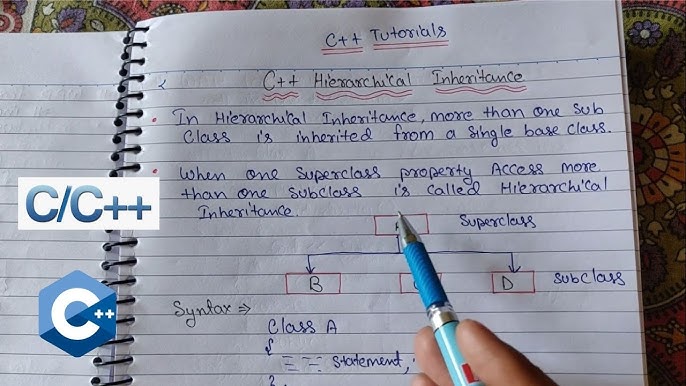 C++ Tutorials
C++ Hierarchical Inheritance
In Hierarchical Inheritance, more than one sub
class is inherited from a single base class.
When one superclass property Access more
than one subclass is called Hierarchical
Inheritance.
C/C++
Superclass
B
D
Subclass
C++
Syntax ⇒
Class A
{
statement,